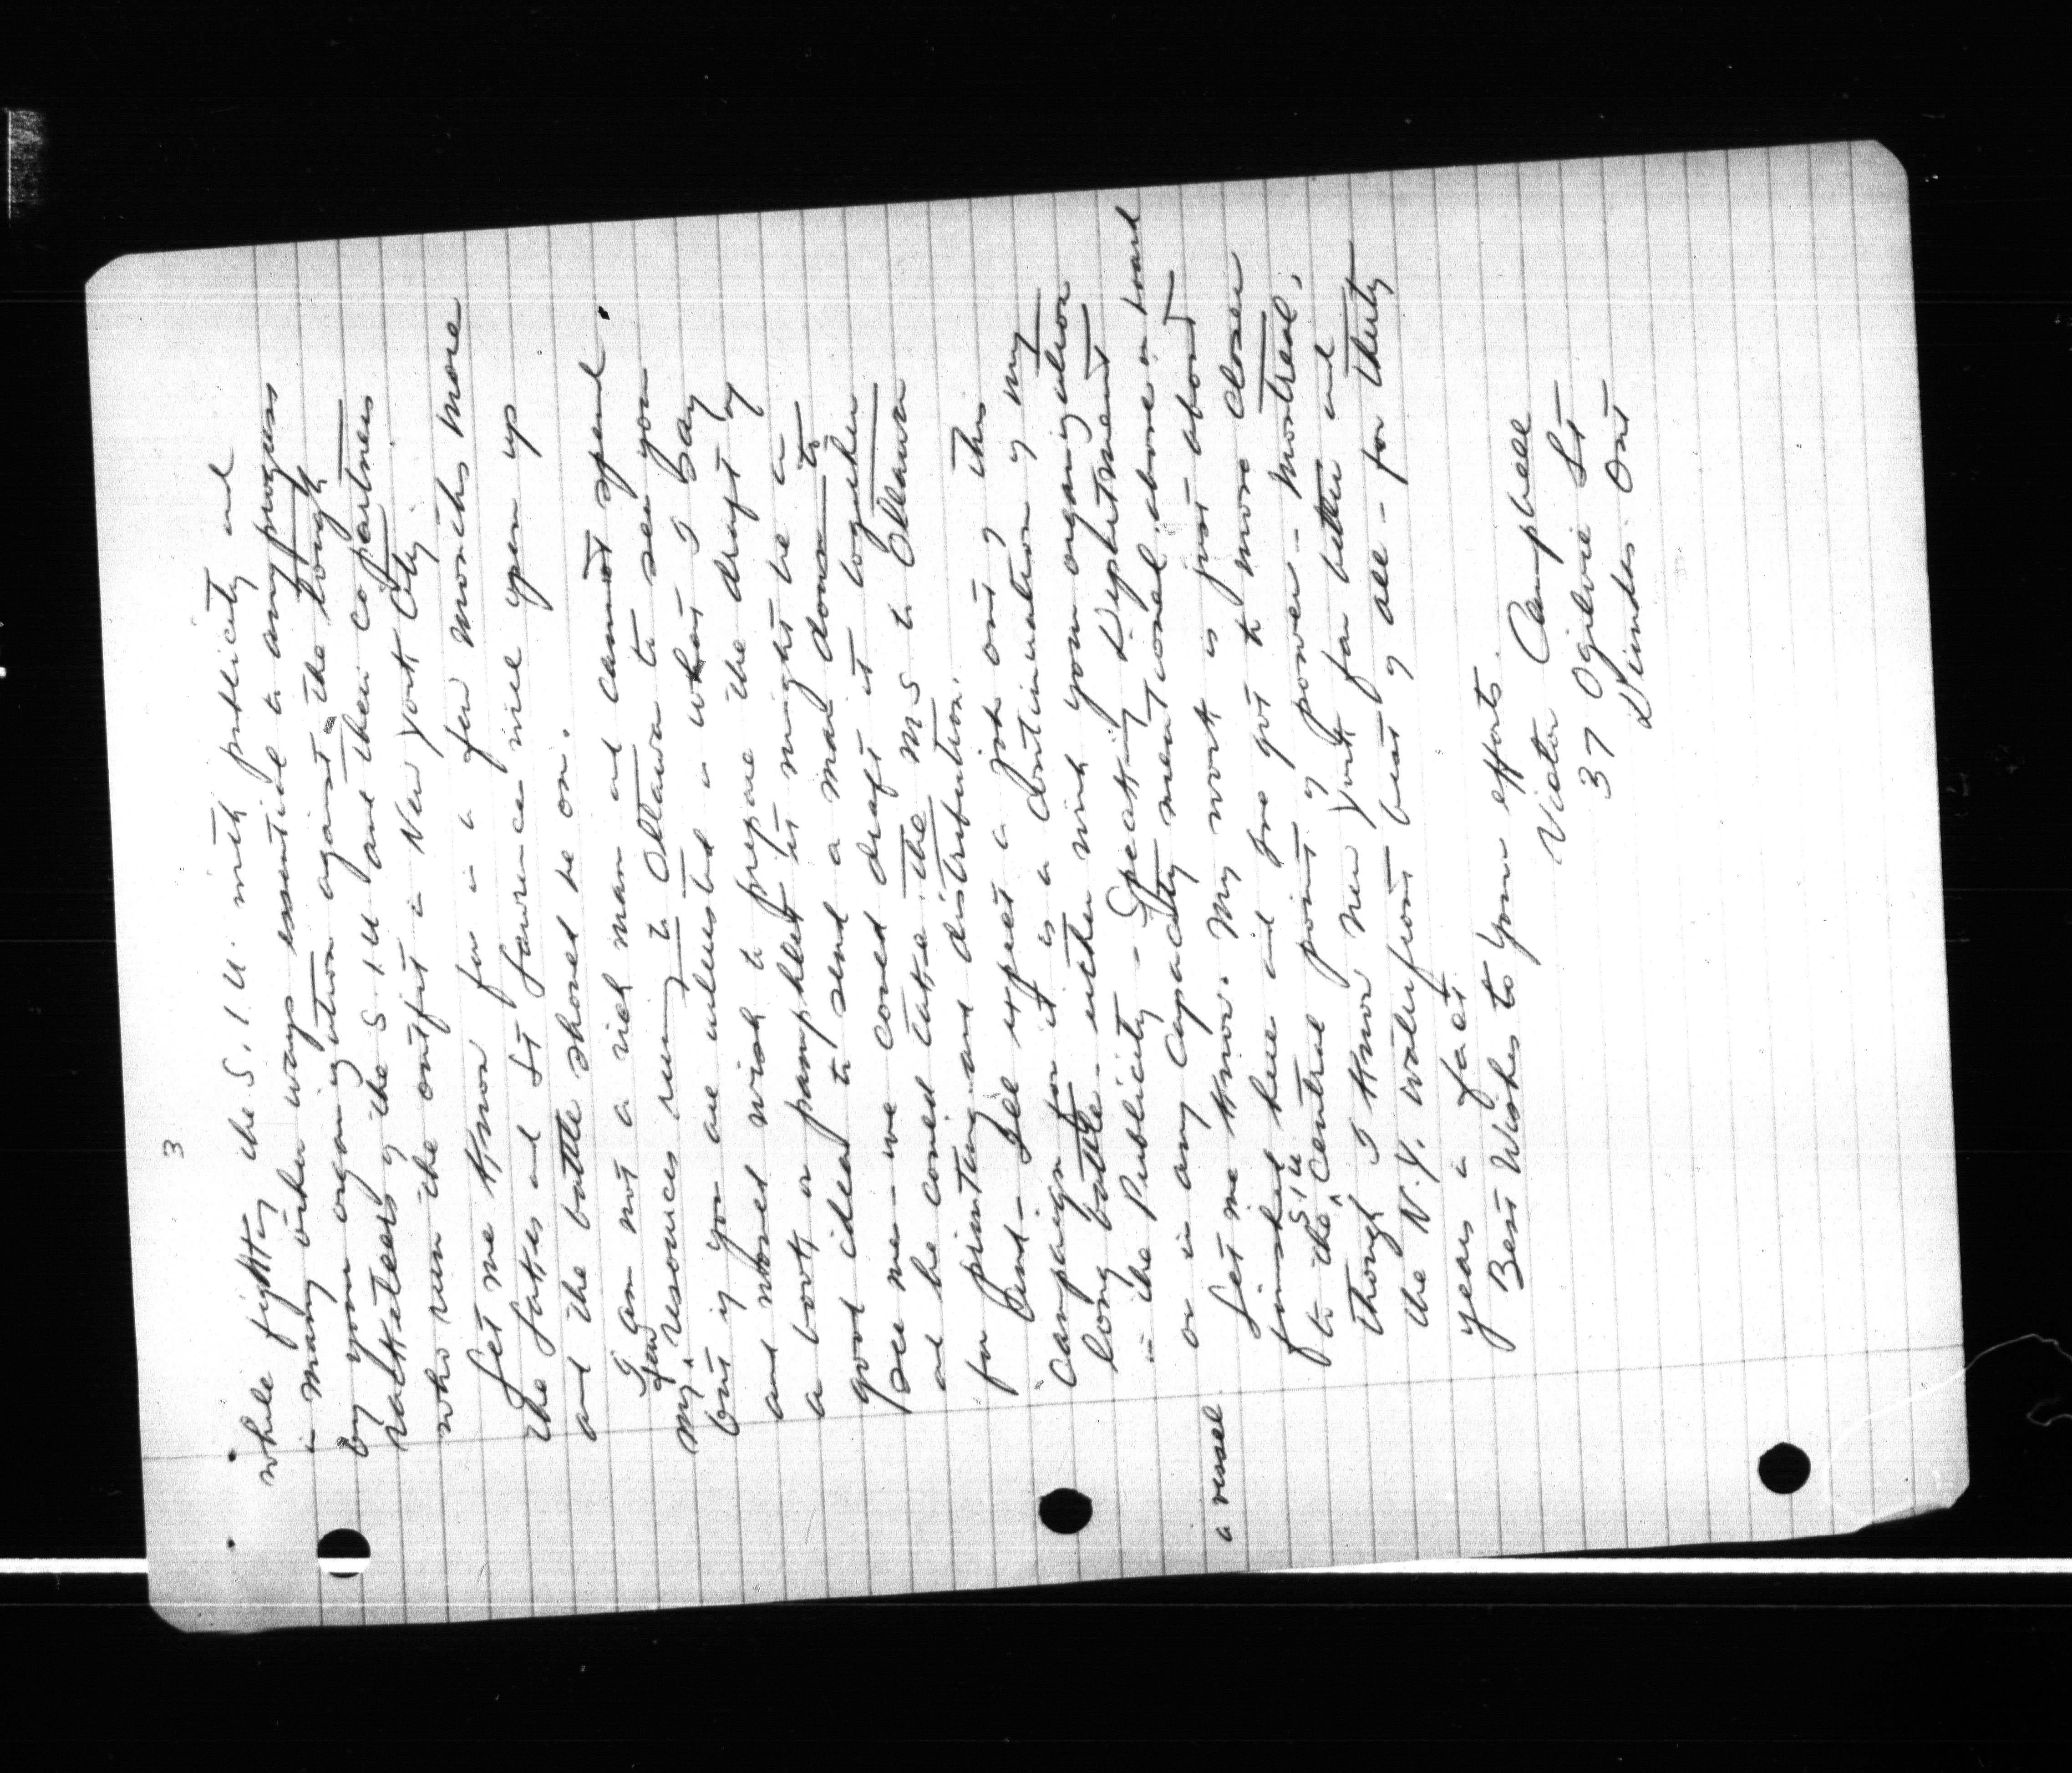 3
while fighting the S.I.U. with publicity and
in many other ways essential to any progress
by your organization against the tough
racketeers of the S.I.U and their co partners
who run the outfit in New York City.
Let me know for in a few months more
the Lakes and St Lawrence will open up
and the battle should be on.
I am not a rich man and cannot spend
my few resources runing to Ottawa to see you
but if you are interested in what I say
and would wish to prepare the draft of
a book or pamphlet it might be a
good idea to send a man down to
see me - we could draft it together
and he could take the MS to Ottawa
for printing and distribution.
And - Ill expect a job out of this
campaign for it is a continuation of my
long battle - either with your organization
in the Publicity - Speaking Dephetment
or in any capacity mentioned above or board
a vessel
Let me know. My work is just about
finished here and Ive got to move closer
to the S.I.U central point of power - Montreal,
though I know New York far better and
the N.Y. waterfront best of all - for thirty
years in fact.
Best Wishes to your efforts.
Victor Campbell
37 Ogilvie St
Dundas. Ont